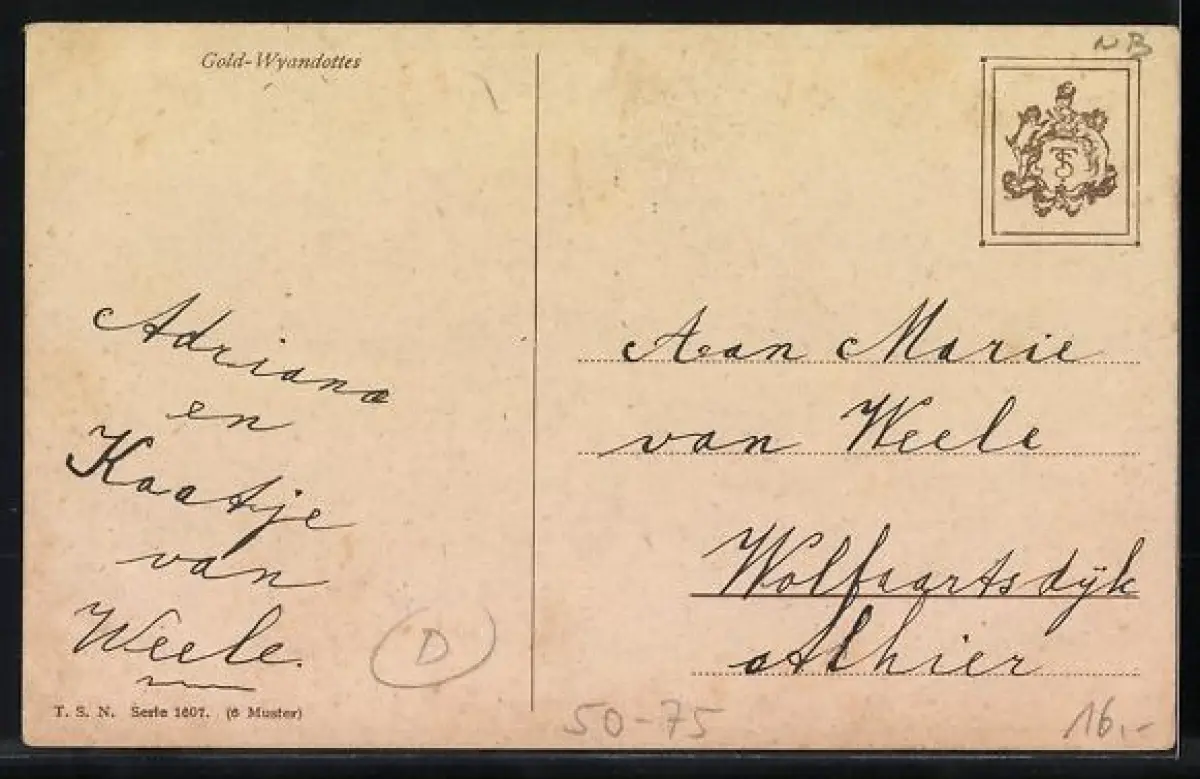 Gold-Wyandottes
NB
TS
Adriana
en
Kaatje
van
Weele.
D
T. S. N. Serie 1607. (6 Muster)
Aan Marie
van Weele
Wolfaartsdijk
Alhier
50-75
16,-